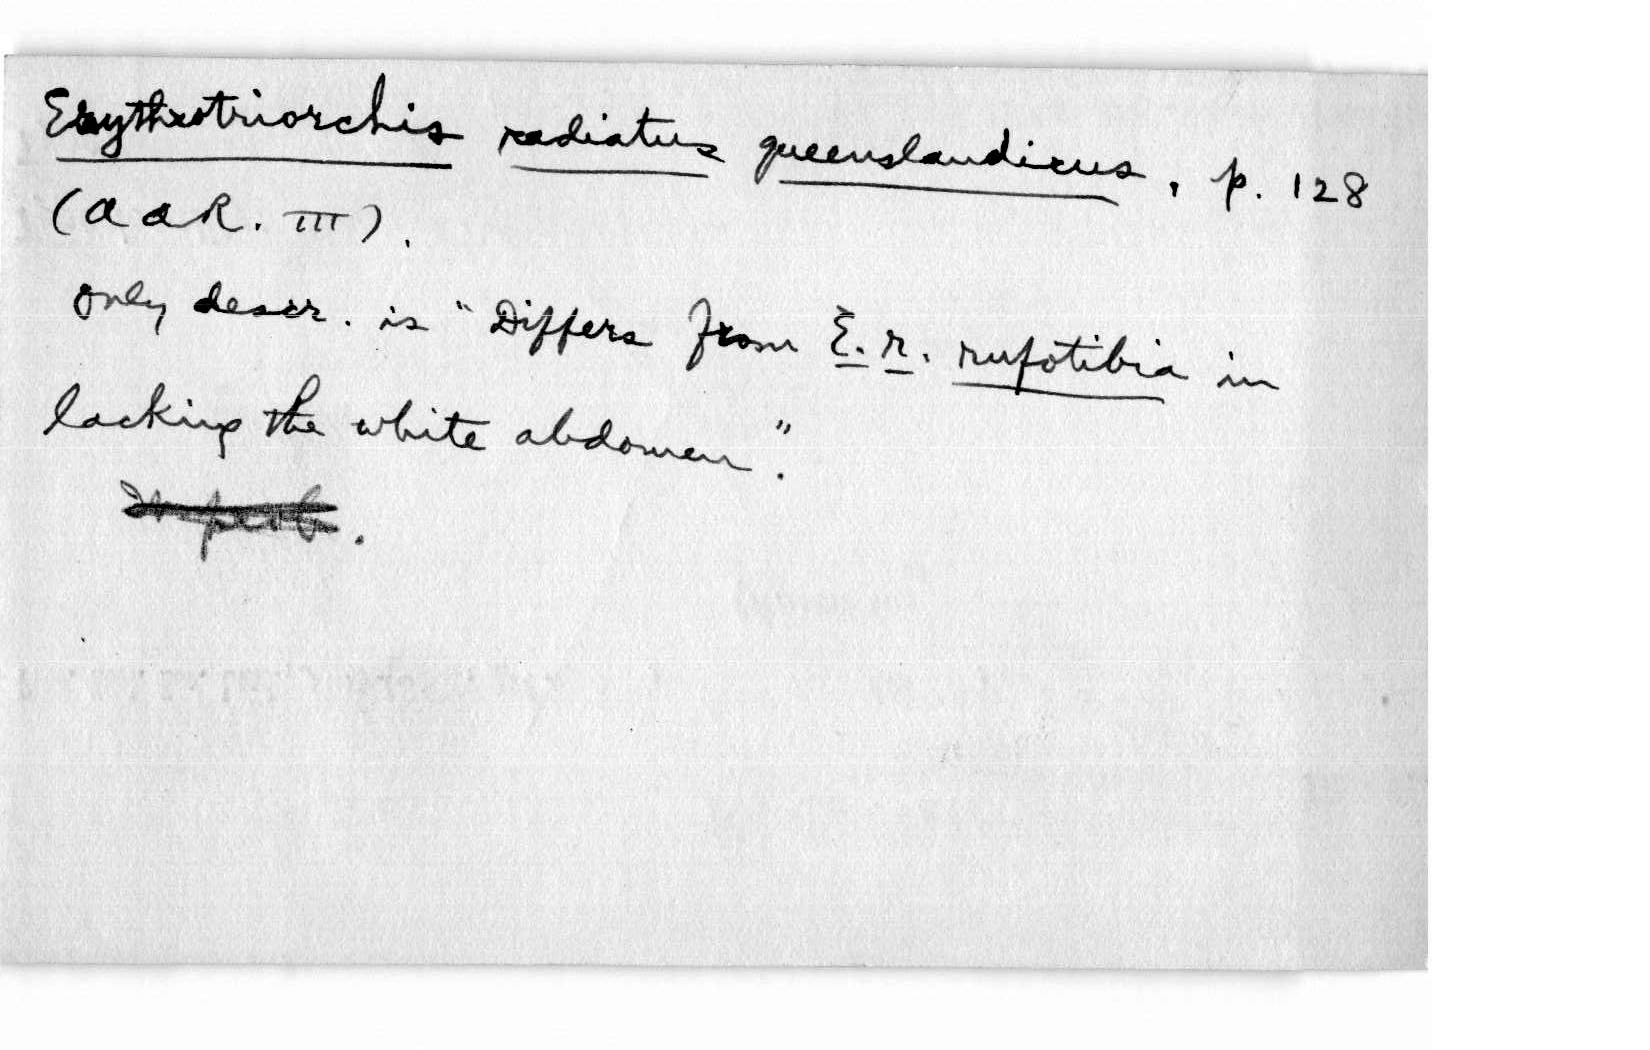 Erythrotriorchis radiatus queenslandicus, p. 128
(AAR. III).
Only descr. is "Differs from E. r. rufotibia in
lacking the white abdomen".